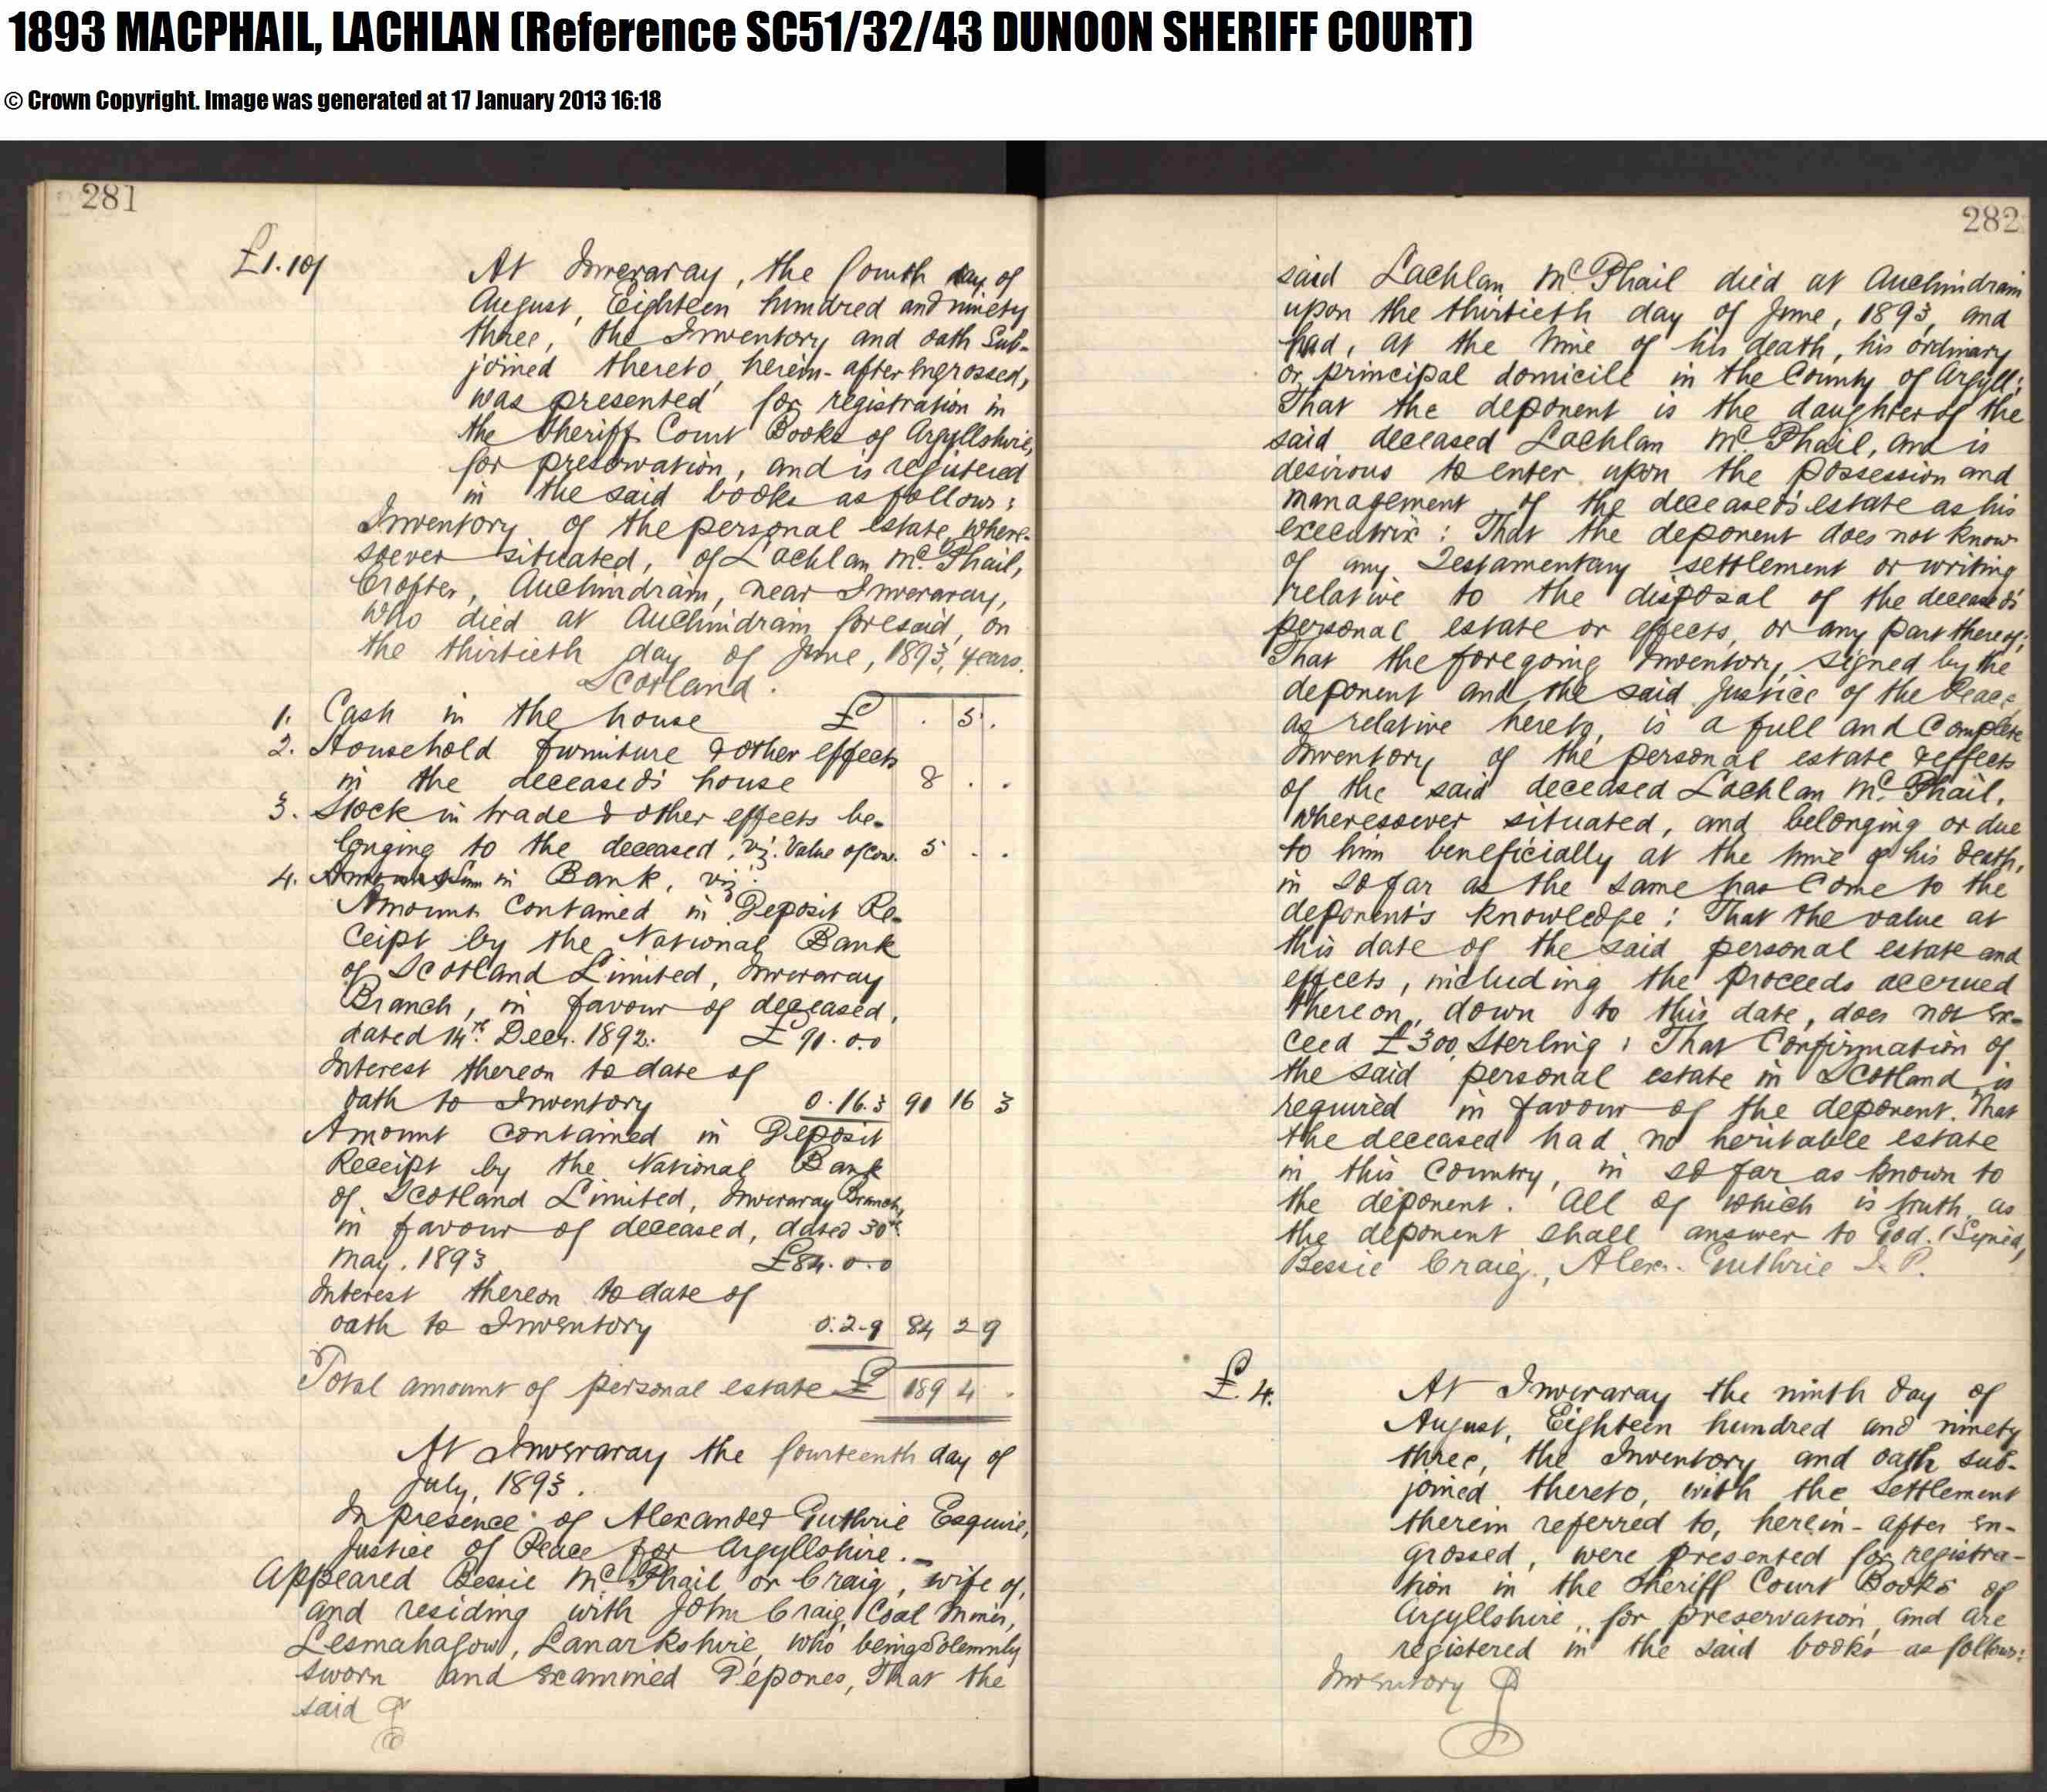 1893 MACPHAIL, LACHLAN (Reference SC51/32/43 DUNOON SHERIFF COURT)
© Crown Copyright. Image was generated at 17 January 2013 16:18
281
£1.10/
At Inveraray, the fourth day of
August, Eighteen hundred and ninety
three, the Inventory and oath Sub-
joined thereto, herein-after Engrossed,
was presented for registration in
the Sheriff Court Books of Argyllshire,
for preservation, and is registered
in the said books as follows:
Inventory of the personal estate, where-
soever situated, of Lachlan McPhail,
Crofter, Auchindrain, near Inveraray,
who died at Auchindrain foresaid, on
the thirtieth day of June, 1893, years.
Scotland.
1. Cash in the house £ . 5 .
2. Household furniture & other effects
in the deceased's house 8 . .
3. Stock in trade & other effects be-
longing to the deceased, viz. Value of Cow. 5 . .
4. in Bank, viz.
Amount contained in Deposit Re-
ceipt by the National Bank
of Scotland Limited, Inveraray
Branch, in favour of deceased,
dated 14th Decr. 1892. £90.0.0
Interest thereon to date of
oath to Inventory 0.16.3 90 16 3
Amount contained in Deposit
Receipt by the National Bank
of Scotland Limited, Inveraray Branch,
in favour of deceased, dated 30th
May, 1893 £84.0.0
Interest thereon to date of
oath to Inventory 0.2.9 84 2 9
Total amount of personal estate £ 189 4 .
At Inveraray the fourteenth day of
July, 1893.
In presence of Alexander Guthrie Esquire,
Justice of Peace for Argyllshire.
Appeared Bessie McPhail or Craig, wife of,
and residing with John Craig, Coal Miner,
Lesmahagow, Lanarkshire, who being Solemnly
sworn and examined Depones, That the
said
282
said Lachlan McPhail died at Auchindrain
upon the thirtieth day of June, 1893, and
had, at the time of his death, his ordinary
or principal domicile in the County of Argyll:
That the deponent is the daughter of the
said deceased Lachlan McPhail, and is
desirous to enter upon the possession and
management of the deceased's estate as his
executrix: That the deponent does not know
of any Testamentary settlement or writing
relative to the disposal of the deceased's
personal estate or effects, or any part thereof;
That the foregoing Inventory, signed by the
deponent and the said Justice of the Peace
as relative hereto, is a full and Complete
Inventory of the personal estate & effects
of the said deceased Lachlan McPhail,
wheresoever situated, and belonging or due
to him beneficially at the time of his death,
in so far as the same has Come to the
deponent's knowledge: That the value at
this date of the said personal estate and
effects, including the proceeds accrued
thereon, down to this date, does not ex-
ceed £300 Sterling: That Confirmation of
the said personal estate in Scotland is
required in favour of the deponent. That
the deceased had no heritable estate
in this Country, in so far as known to
the deponent. All of which is truth as
the deponent shall answer to God. (Signed)
Bessie Craig, Alexr. Guthrie J.P.
£4.
At Inveraray the ninth day of
August, Eighteen hundred and ninety
three, the Inventory and oath sub-
joined thereto, with the Settlement
therein referred to, herein-after en-
grossed, were presented for registra-
tion in the Sheriff Court Books of
Argyllshire, for preservation, and are
registered in the said books as follows:
Inventory